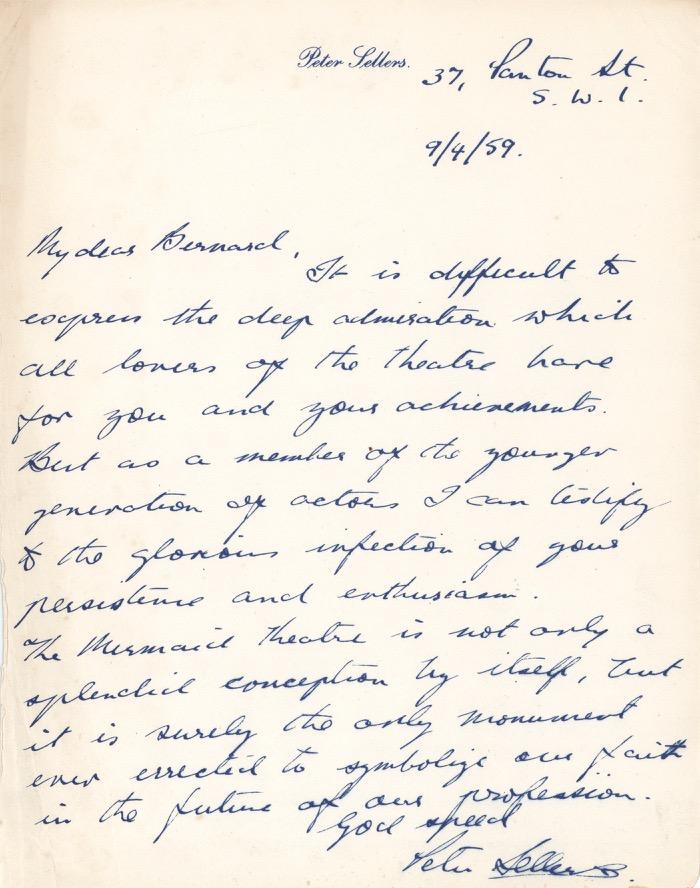 Peter Sellers.
37, Panton St.
S. W. 1.
9/4/59.
My dear Bernard,
It is difficult to
express the deep admiration which
all lovers of the theatre have
for you and your achievements.
But as a member of the younger
generation of actors I can testify
to the glorious infection of your
persistence and enthusiasm.
The Mermaid Theatre is not only a
splendid conception by itself, but
it is surely the only monument
ever errected to symbolize our faith
in the future of our profession.
God speed
Peter Sellers.